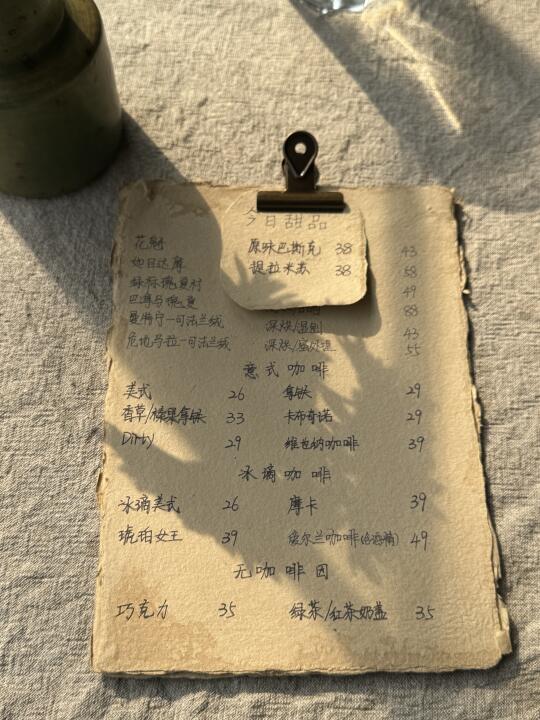 今日甜品
原味巴斯克 38
提拉米苏 38
花魁 43
如日达摩 58
绿标瑰夏村 49
巴拿马瑰夏 88
曼特宁-可法兰绒 深烘/湿刨 43
危地马拉-可法兰绒 深烘/ 55
意式咖啡
美式 26 拿铁 29
香草/榛果拿铁 33 卡布奇诺 29
Dirty 29 维也纳咖啡 39
冰滴咖啡
冰滴美式 26 摩卡 39
琥珀女王 39 爱尔兰咖啡(含酒精) 49
无咖啡因
巧克力 35 绿茶/红茶奶盖 35